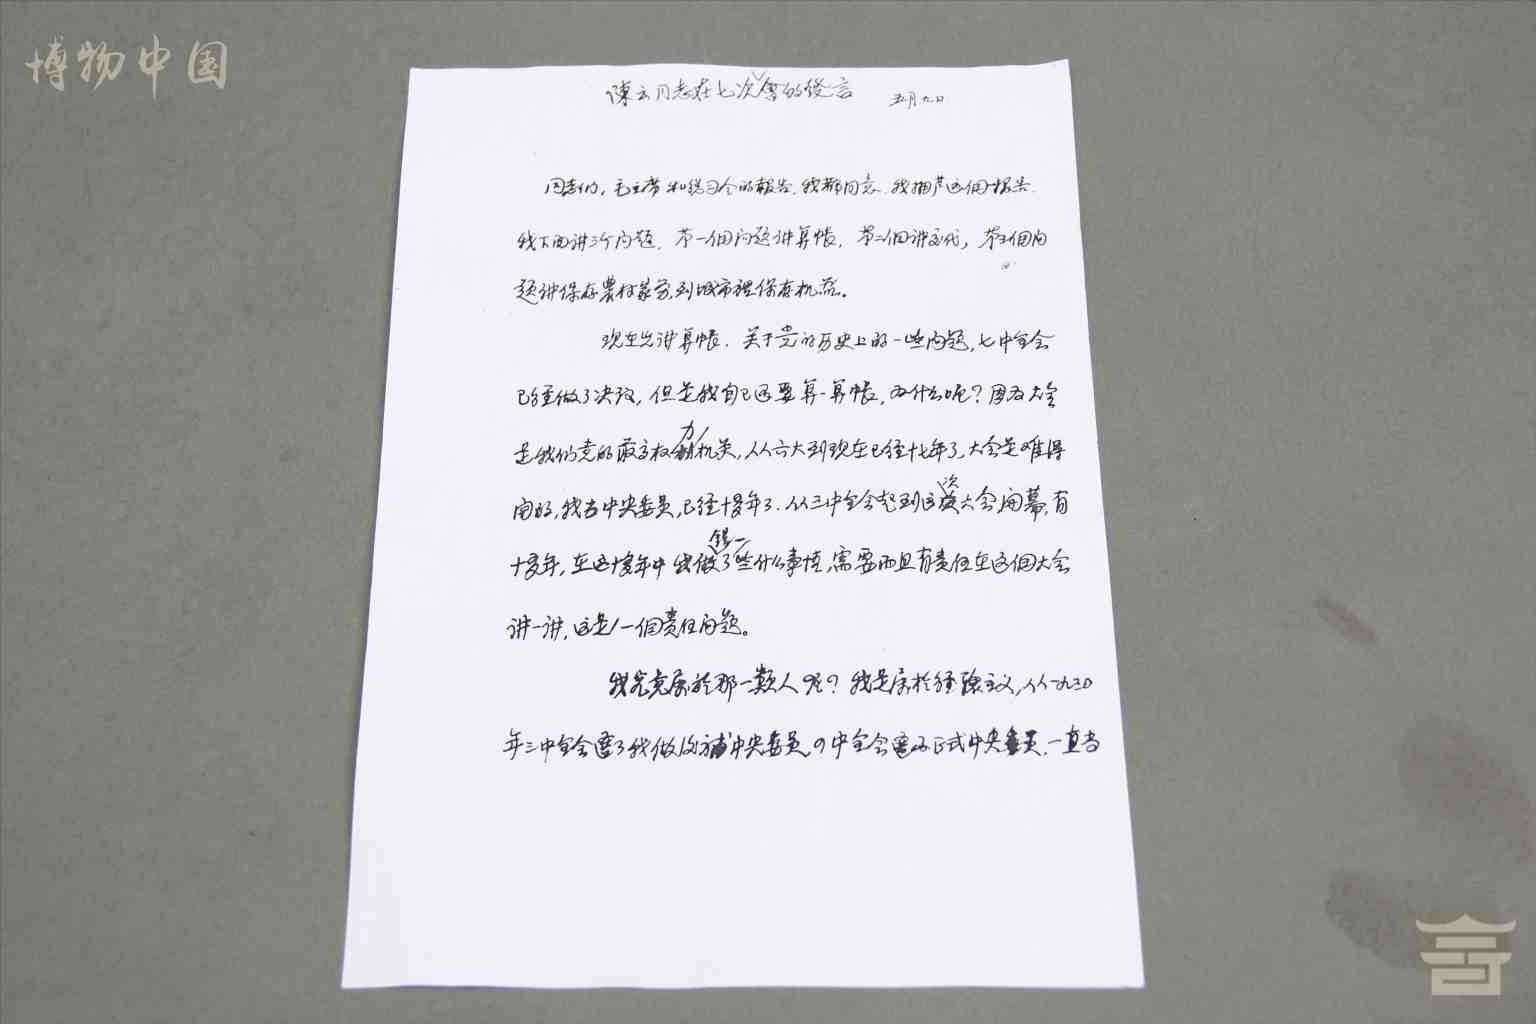 博物中国
陳云同志在七次會的發言 五月九日
同志们，毛主席和总司令的報告，我都同意，我拥护这個报告。
我下面讲三个问题，第一個问题讲算帐，第二個讲交代，第三個问
题讲保存農村家务，到城市裡保存机器。
现在先讲算帐，关于党的历史上的一些问题，七中全会
已经做了决议，但是我自己还要算一算帐，为什么呢？因为大会
是我们党的最高权力机关，从六大到现在已经十七年了，大会是难得
开的，我当中央委员，已经十多年了，从三中全会起到这次大会开幕，有
十多年，在这十多年中我做了些什么事情，需要而且有责任在这個大会
讲一讲，这是一個责任问题。
我究竟属於那一類人呢？我是属於经驗主义，从一九三〇
年三中全会選了我做候補中央委员，四中全会選为正式中央委员，一直当